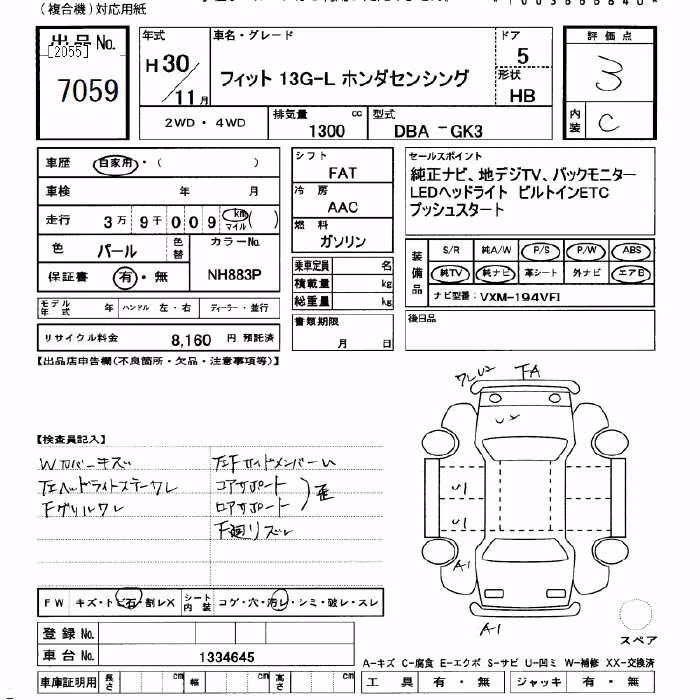 (複合機)対応用紙
出品No.
[2055]
7059
年式
H30/11月
車名・グレード
フィット 13G-L ホンダセンシング
ドア
5
形状
HB
評価点
3
内装
C
2WD・4WD
排気量
cc
1300
型式
DBA -GK3
車歴 自家用・( )
車検 年 月
走行 3万9千009 km マイル ( )
色 パール 色替
カラーNo.
NH883P
保証書 有・無
モデル年式 年 ハンドル 左・右 ディーラー・並行
リサイクル料金 8,160 円 預託済
シフト
FAT
冷房
AAC
燃料
ガソリン
乗車定員 名
積載量 kg
総重量 kg
書類期限
月 日
セールスポイント
純正ナビ、地デジTV、バックモニター
LEDヘッドライト ビルトインETC
プッシュスタート
装備品
S/R 純A/W P/S P/W ABS
純TV 純ナビ 革シート 外ナビ エアB
ナビ型番: VXM-194VFI
後日品
【出品店申告欄(不良箇所・欠品・注意事項等)】
【検査員記入】
Wカバーキズ
左ヘッドライトステーワレ
Fグリルワレ
左Fサイドメンバーレ
コアサポート
ロアサポート
歪
下廻リズレ
ワレU2
FA
U1
U1
A1
A1
FW キズ・トビ石・割レX シート内装 コゲ・穴・汚レ・シミ・破レ・スレ
登録No.
車台No. 1334645
車庫証明用 長さ cm 幅 cm 高さ cm
スペア
A-キズ C-腐食 E-エクボ S-サビ U-凹ミ W-補修 XX-交換済
工具 有・無 ジャッキ 有・無